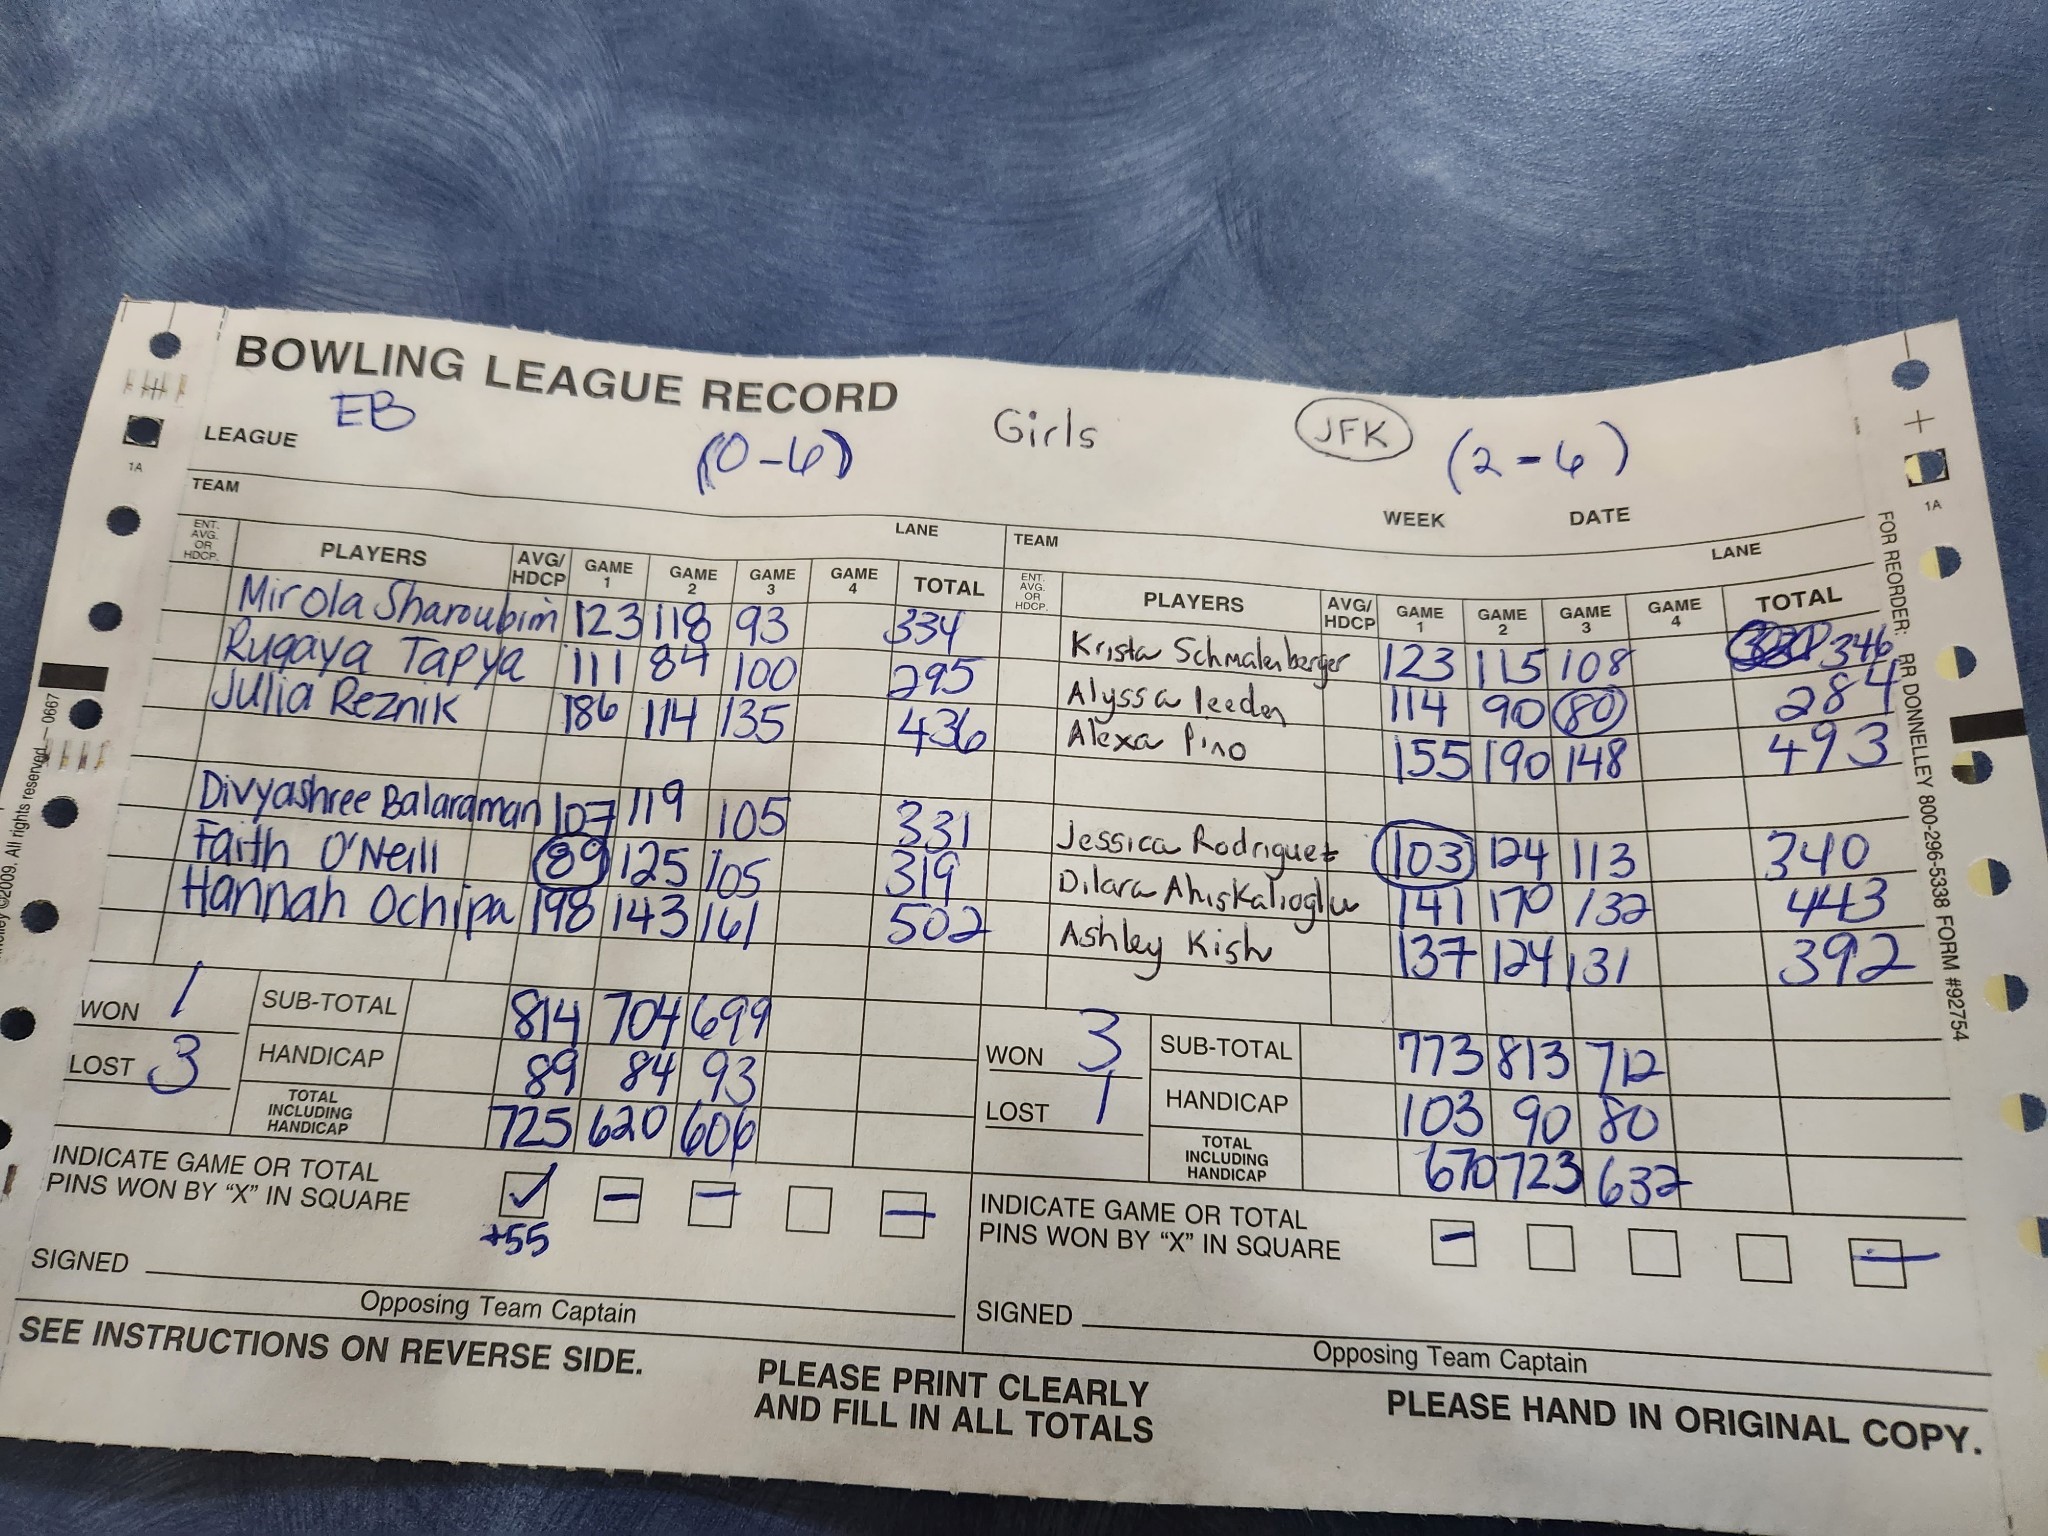 BOWLING LEAGUE RECORD
LEAGUE EB (0-6) Girls JFK (2-6)
TEAM
WEEK DATE
LANE TEAM LANE
ENT. AVG. OR HDCP. PLAYERS AVG/ HDCP GAME 1 GAME 2 GAME 3 GAME 4 TOTAL
Mirola Sharoubim 123 118 93 334
Rugaya Tapya 111 84 100 295
Julia Reznik 186 114 135 436
Divyashree Balaraman 107 119 105 331
Faith O'Neill 89 125 105 319
Hannah Ochipa 198 143 161 502
WON 1 SUB-TOTAL 814 704 699
LOST 3 HANDICAP 89 84 93
TOTAL INCLUDING HANDICAP 725 620 606
INDICATE GAME OR TOTAL
PINS WON BY "X" IN SQUARE ✓ – – –
+55
SIGNED
Opposing Team Captain
ENT. AVG. OR HDCP. PLAYERS AVG/ HDCP GAME 1 GAME 2 GAME 3 GAME 4 TOTAL
Krista Schmalenberger 123 115 108 346
Alyssa leeden 114 90 80 284
Alexa Pino 155 190 148 493
Jessica Rodriguez 103 124 113 340
Dilara Ahiskalioglu 141 170 132 443
Ashley Kish 137 124 131 392
WON 3 SUB-TOTAL 773 813 712
LOST 1 HANDICAP 103 90 80
TOTAL INCLUDING HANDICAP 670 723 632
INDICATE GAME OR TOTAL
PINS WON BY "X" IN SQUARE – –
SIGNED
Opposing Team Captain
SEE INSTRUCTIONS ON REVERSE SIDE.
PLEASE PRINT CLEARLY
AND FILL IN ALL TOTALS
PLEASE HAND IN ORIGINAL COPY.
1A
1A
©2009. All rights reserved. — 0667
FOR REORDER: RR DONNELLEY 800-296-5338 FORM #92754